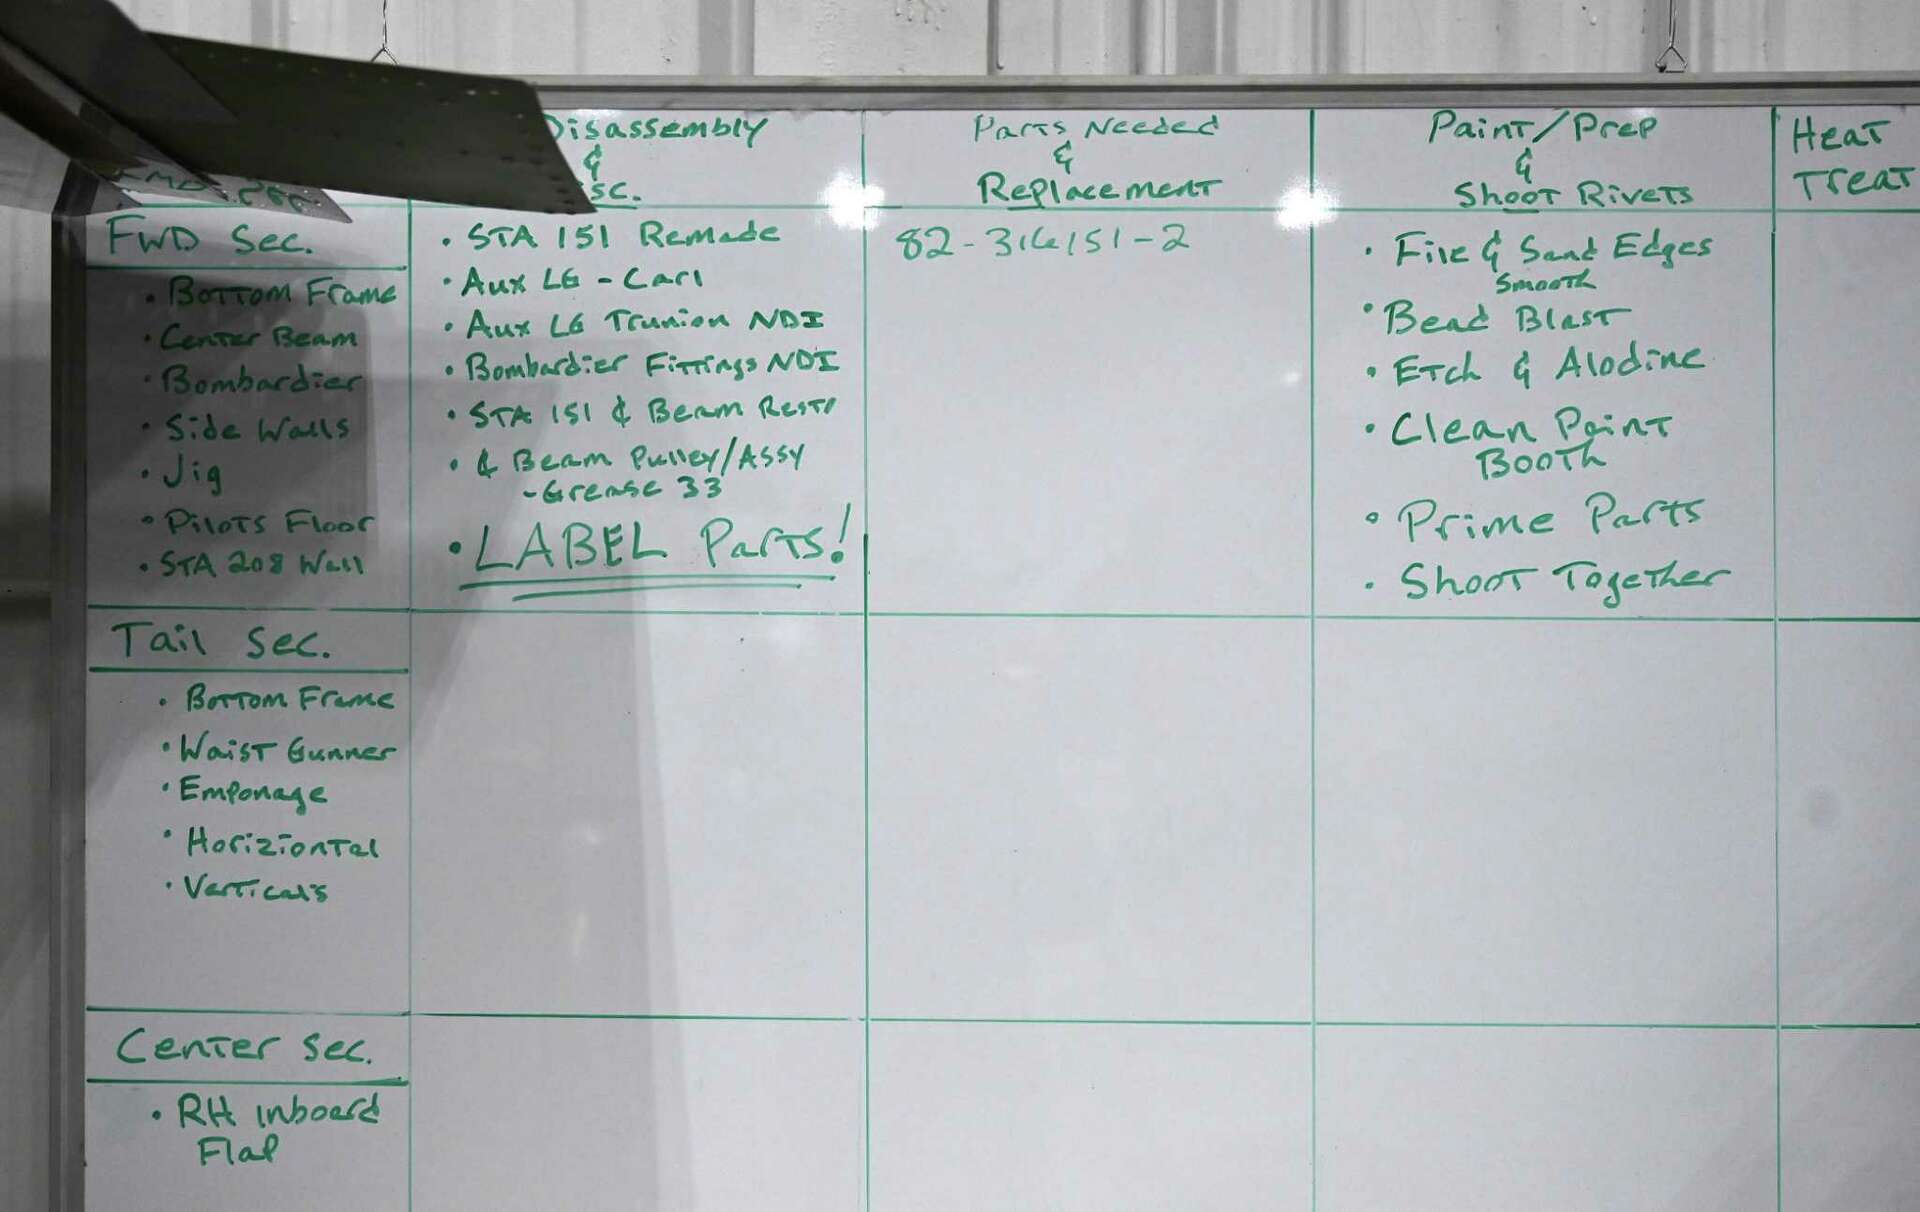 Disassembly
&
sc.
Parts Needed
&
Replacement
Paint/Prep
&
Shoot Rivets
Heat
Treat
FWD Sec.
• Bottom Frame
• Center Beam
• Bombardier
• Side Walls
• Jig
• Pilots Floor
• STA 208 Wall
• STA 151 Remade
• Aux LG - Carl
• Aux LG Trunion NDI
• Bombardier Fittings NDI
• STA 151 & Beam
• & Beam Pulley/Assy
- Grease 33
• LABEL Parts!
82-316151-2
• File & Sand Edges
Smooth
• Bead Blast
• Etch & Alodine
• Clean Paint
Booth
• Prime Parts
• Shoot Together
Tail Sec.
• Bottom Frame
• Waist Gunner
• Emponage
• Horiziontal
• Verticals
Center Sec.
• RH inboard
Flap